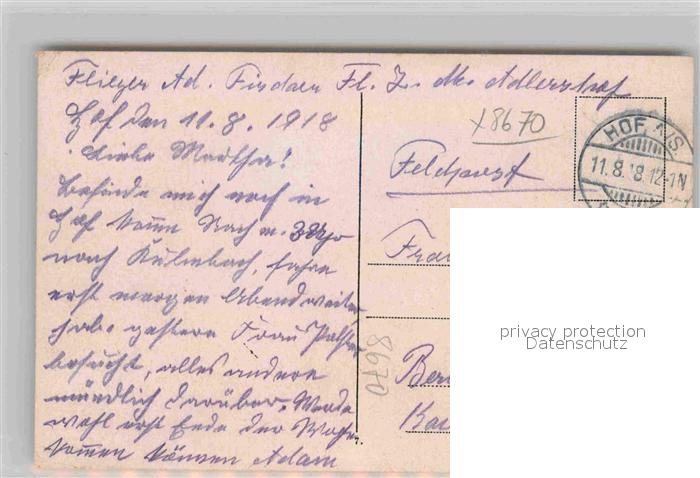 Flieger Ad. Fl. Z. Adlershof
Hof den 11.8.1918
Liebe Martha!
Befinde mich noch in
Hof komme Nachm. 3 Uhr
nach Kulmbach, fahre
erst morgen Abend weiter
habe gestern Frau
besucht, alles andere
mündlich darüber. Werde
wohl erst Ende der Woche
kommen können Adam
x8670
Feldpost
HOF
11.8.18.12-1N
Frau
8670
privacy protection
Datenschutz